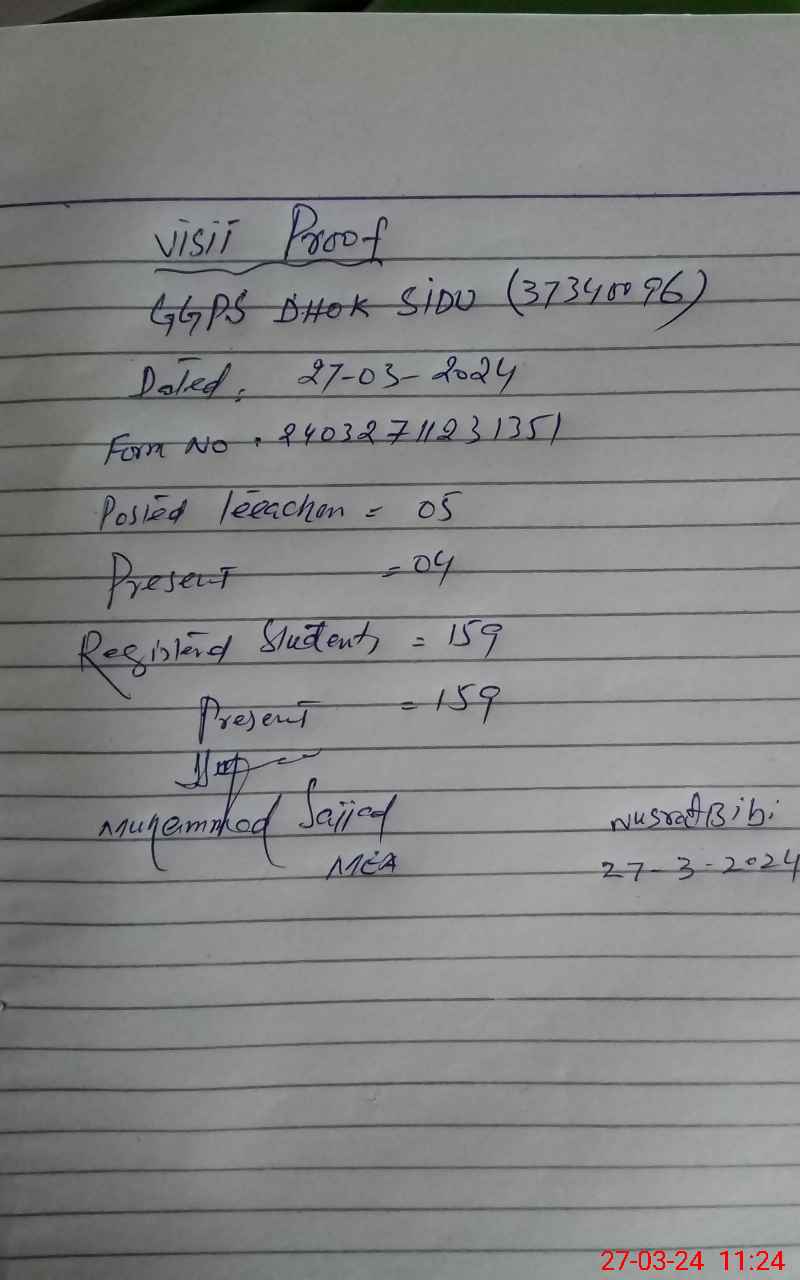 Visit Proof
GGPS DHOK SIDU (37340096)
Dated: 27-03-2024
Form No. 24032711231351
Posted Teeachon = 05
Present = 04
Registerd Students = 159
Present = 159
Muhammad Sajjad
MEA
Nusrat Bibi
27-3-2024
27-03-24 11:24